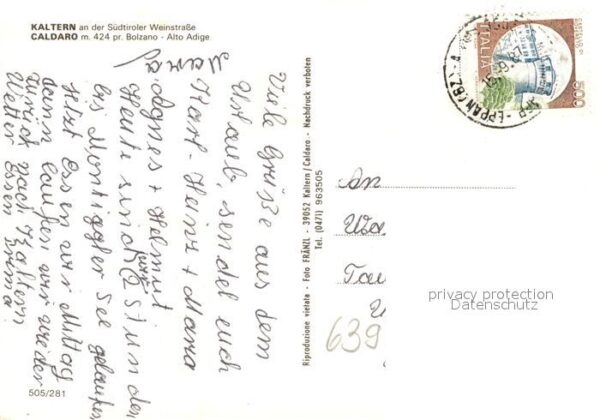 KALTERN an der Südtiroler Weinstraße
CALDARO m. 424 pr. Bolzano - Alto Adige
Viele Grüße aus dem
Urlaub, sendel euch
Karl-Heinz + Maria
Agnes + Helmut
Heute sind wir 2 Stunden
bis Montiggler See gelaufen
Jetzt Essen wir Mittag
dann laufen wir wieder
zurück nach Kaltern
Wetter Essen Prima!
505/281
Riproduzione vietata - Foto FRÄNZL - 39052 Kaltern / Caldaro - Nachdruck verboten
Tel. (0471) 963505
ITALIA
500
EPPAN (BZ)
An
639
privacy protection
Datenschutz